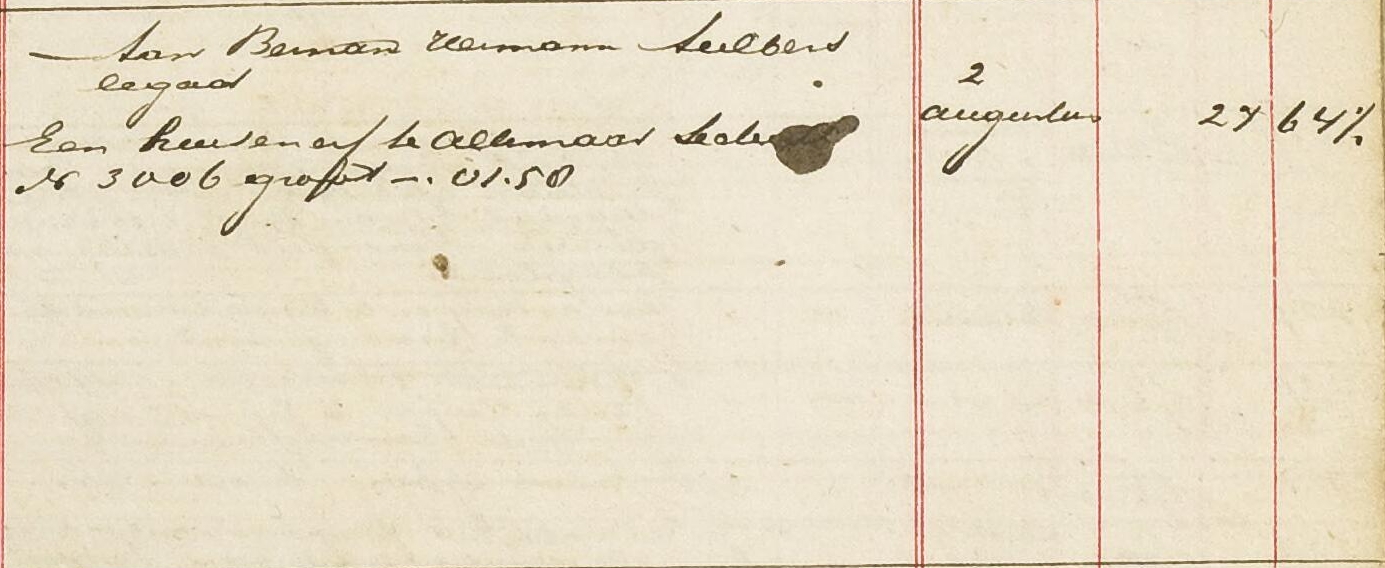 — Aan Bernard Hermann Seelbers
legaat
Een huis en erf te Alkmaar Sectie
Nr 3006 groot —. 01.58
2
augustus
27 64½